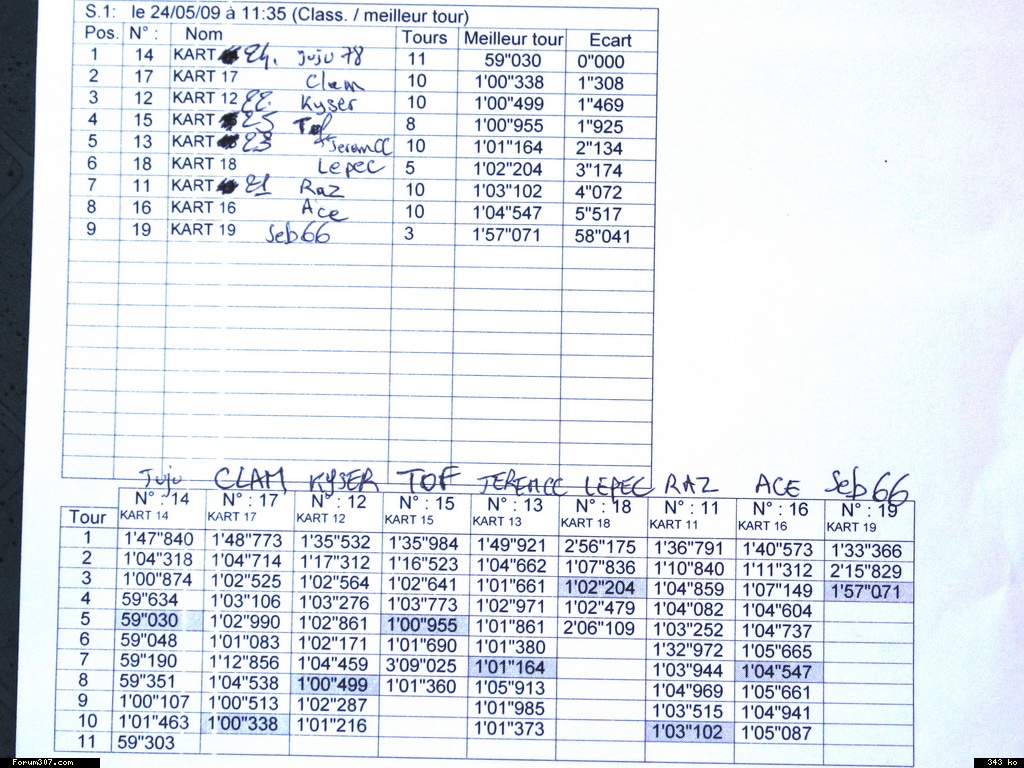 S.1: le 24/05/09 à 11:35 (Class. / meilleur tour)
Pos. N° : Nom Tours Meilleur tour Ecart
1 14 KART 24. juju 78 11 59"030 0"000
2 17 KART 17 Clam 10 1'00"338 1"308
3 12 KART 12 22 Kyser 10 1'00"499 1"469
4 15 KART 25 Tof 8 1'00"955 1"925
5 13 KART 23 JeremCC 10 1'01"164 2"134
6 18 KART 18 Lepec 5 1'02"204 3"174
7 11 KART 21 Raz 10 1'03"102 4"072
8 16 KART 16 Ace 10 1'04"547 5"517
9 19 KART 19 Seb66 3 1'57"071 58"041
Juju CLAM KYSER TOF JEREMCC LEPEC RAZ ACE Seb66
N° : 14 N° : 17 N° : 12 N° : 15 N° : 13 N° : 18 N° : 11 N° : 16 N° : 19
Tour KART 14 KART 17 KART 12 KART 15 KART 13 KART 18 KART 11 KART 16 KART 19
1 1'47"840 1'48"773 1'35"532 1'35"984 1'49"921 2'56"175 1'36"791 1'40"573 1'33"366
2 1'04"318 1'04"714 1'17"312 1'16"523 1'04"662 1'07"836 1'10"840 1'11"312 2'15"829
3 1'00"874 1'02"525 1'02"564 1'02"641 1'01"661 1'02"204 1'04"859 1'07"149 1'57"071
4 59"634 1'03"106 1'03"276 1'03"773 1'02"971 1'02"479 1'04"082 1'04"604
5 59"030 1'02"990 1'02"861 1'00"955 1'01"861 2'06"109 1'03"252 1'04"737
6 59"048 1'01"083 1'02"171 1'01"690 1'01"380 1'32"972 1'05"665
7 59"190 1'12"856 1'04"459 3'09"025 1'01"164 1'03"944 1'04"547
8 59"351 1'04"538 1'00"499 1'01"360 1'05"913 1'04"969 1'05"661
9 1'00"107 1'00"513 1'02"287 1'01"985 1'03"515 1'04"941
10 1'01"463 1'00"338 1'01"216 1'01"373 1'03"102 1'05"087
11 59"303
Forum307.com 343 ko